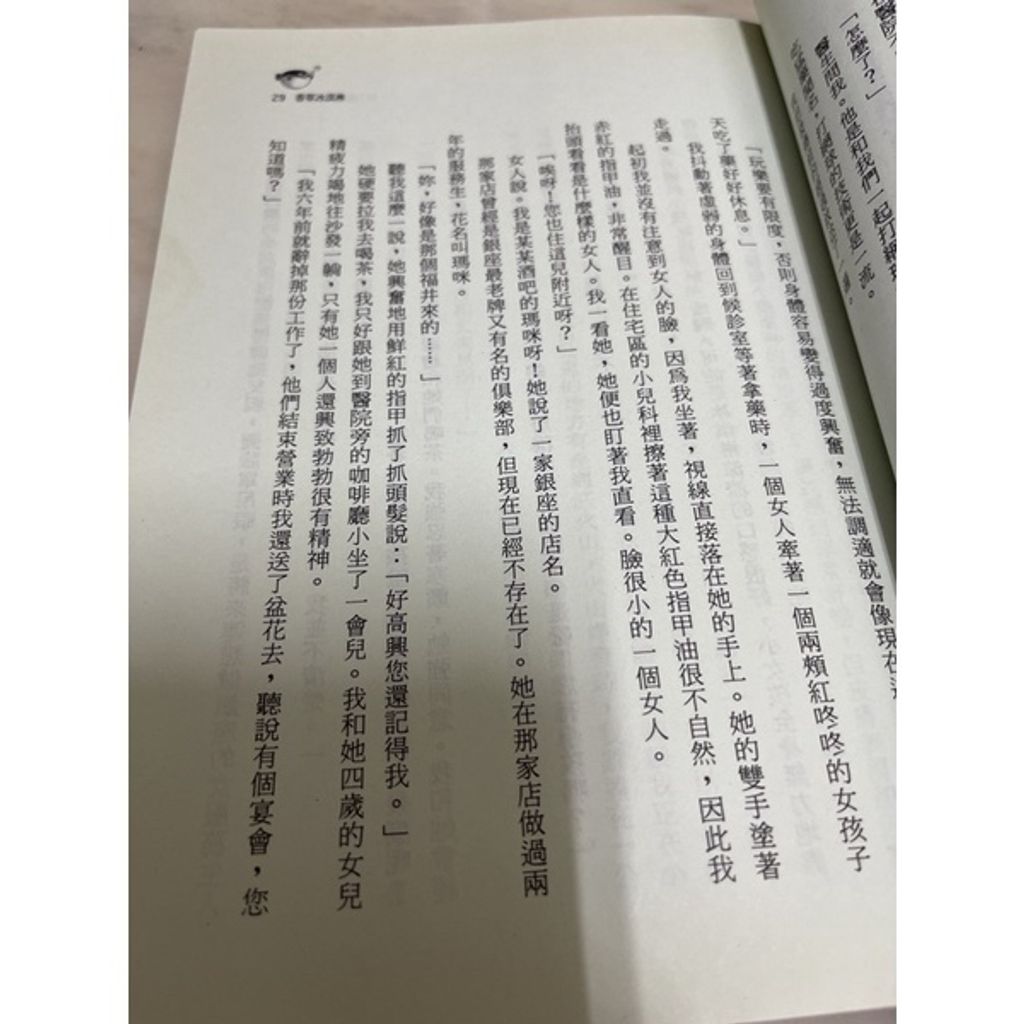 「怎麼了？」
醫生問我。他是和我們一起打
29
「玩樂要有限度，否則身體容易變得過度興奮，無法調適就會像現在
天吃了藥好好休息。」
我抖動著虛弱的身體回到候診室等著拿藥時，一個女人牽著一個兩頰紅咚咚的女孩子
走過。
起初我並沒有注意到女人的臉，因為我坐著，視線直接落在她的手上。她的雙手塗著
赤紅的指甲油，非常醒目。在住宅區的小兒科裡擦著這種大紅色指甲油很不自然，因此我
抬頭看看是什麼樣的女人。我一看她，她便也盯著我直看。臉很小的一個女人。
「唉呀！您也住這兒附近呀？」
女人說。我是某某酒吧的瑪咪呀！她說了一家銀座的店名。
那家店曾經是銀座最老牌又有名的俱樂部，但現在已經不存在了。她在那家店做過兩
年的服務生，花名叫瑪咪。
「妳，好像是那個福井來的……」
聽我這麼一說，她興奮地用鮮紅的指甲抓了抓頭髮說：「好高興您還記得我。」
她硬要拉我去喝茶，我只好跟她到醫院旁的咖啡廳小坐了一會兒。我和她四歲的女兒
精疲力竭地往沙發一躺，只有她一個人還興致勃勃很有精神。
「我六年前就辭掉那份工作了，他們結束營業時我還送了盆花去，聽說有個宴會，您
知道嗎？」